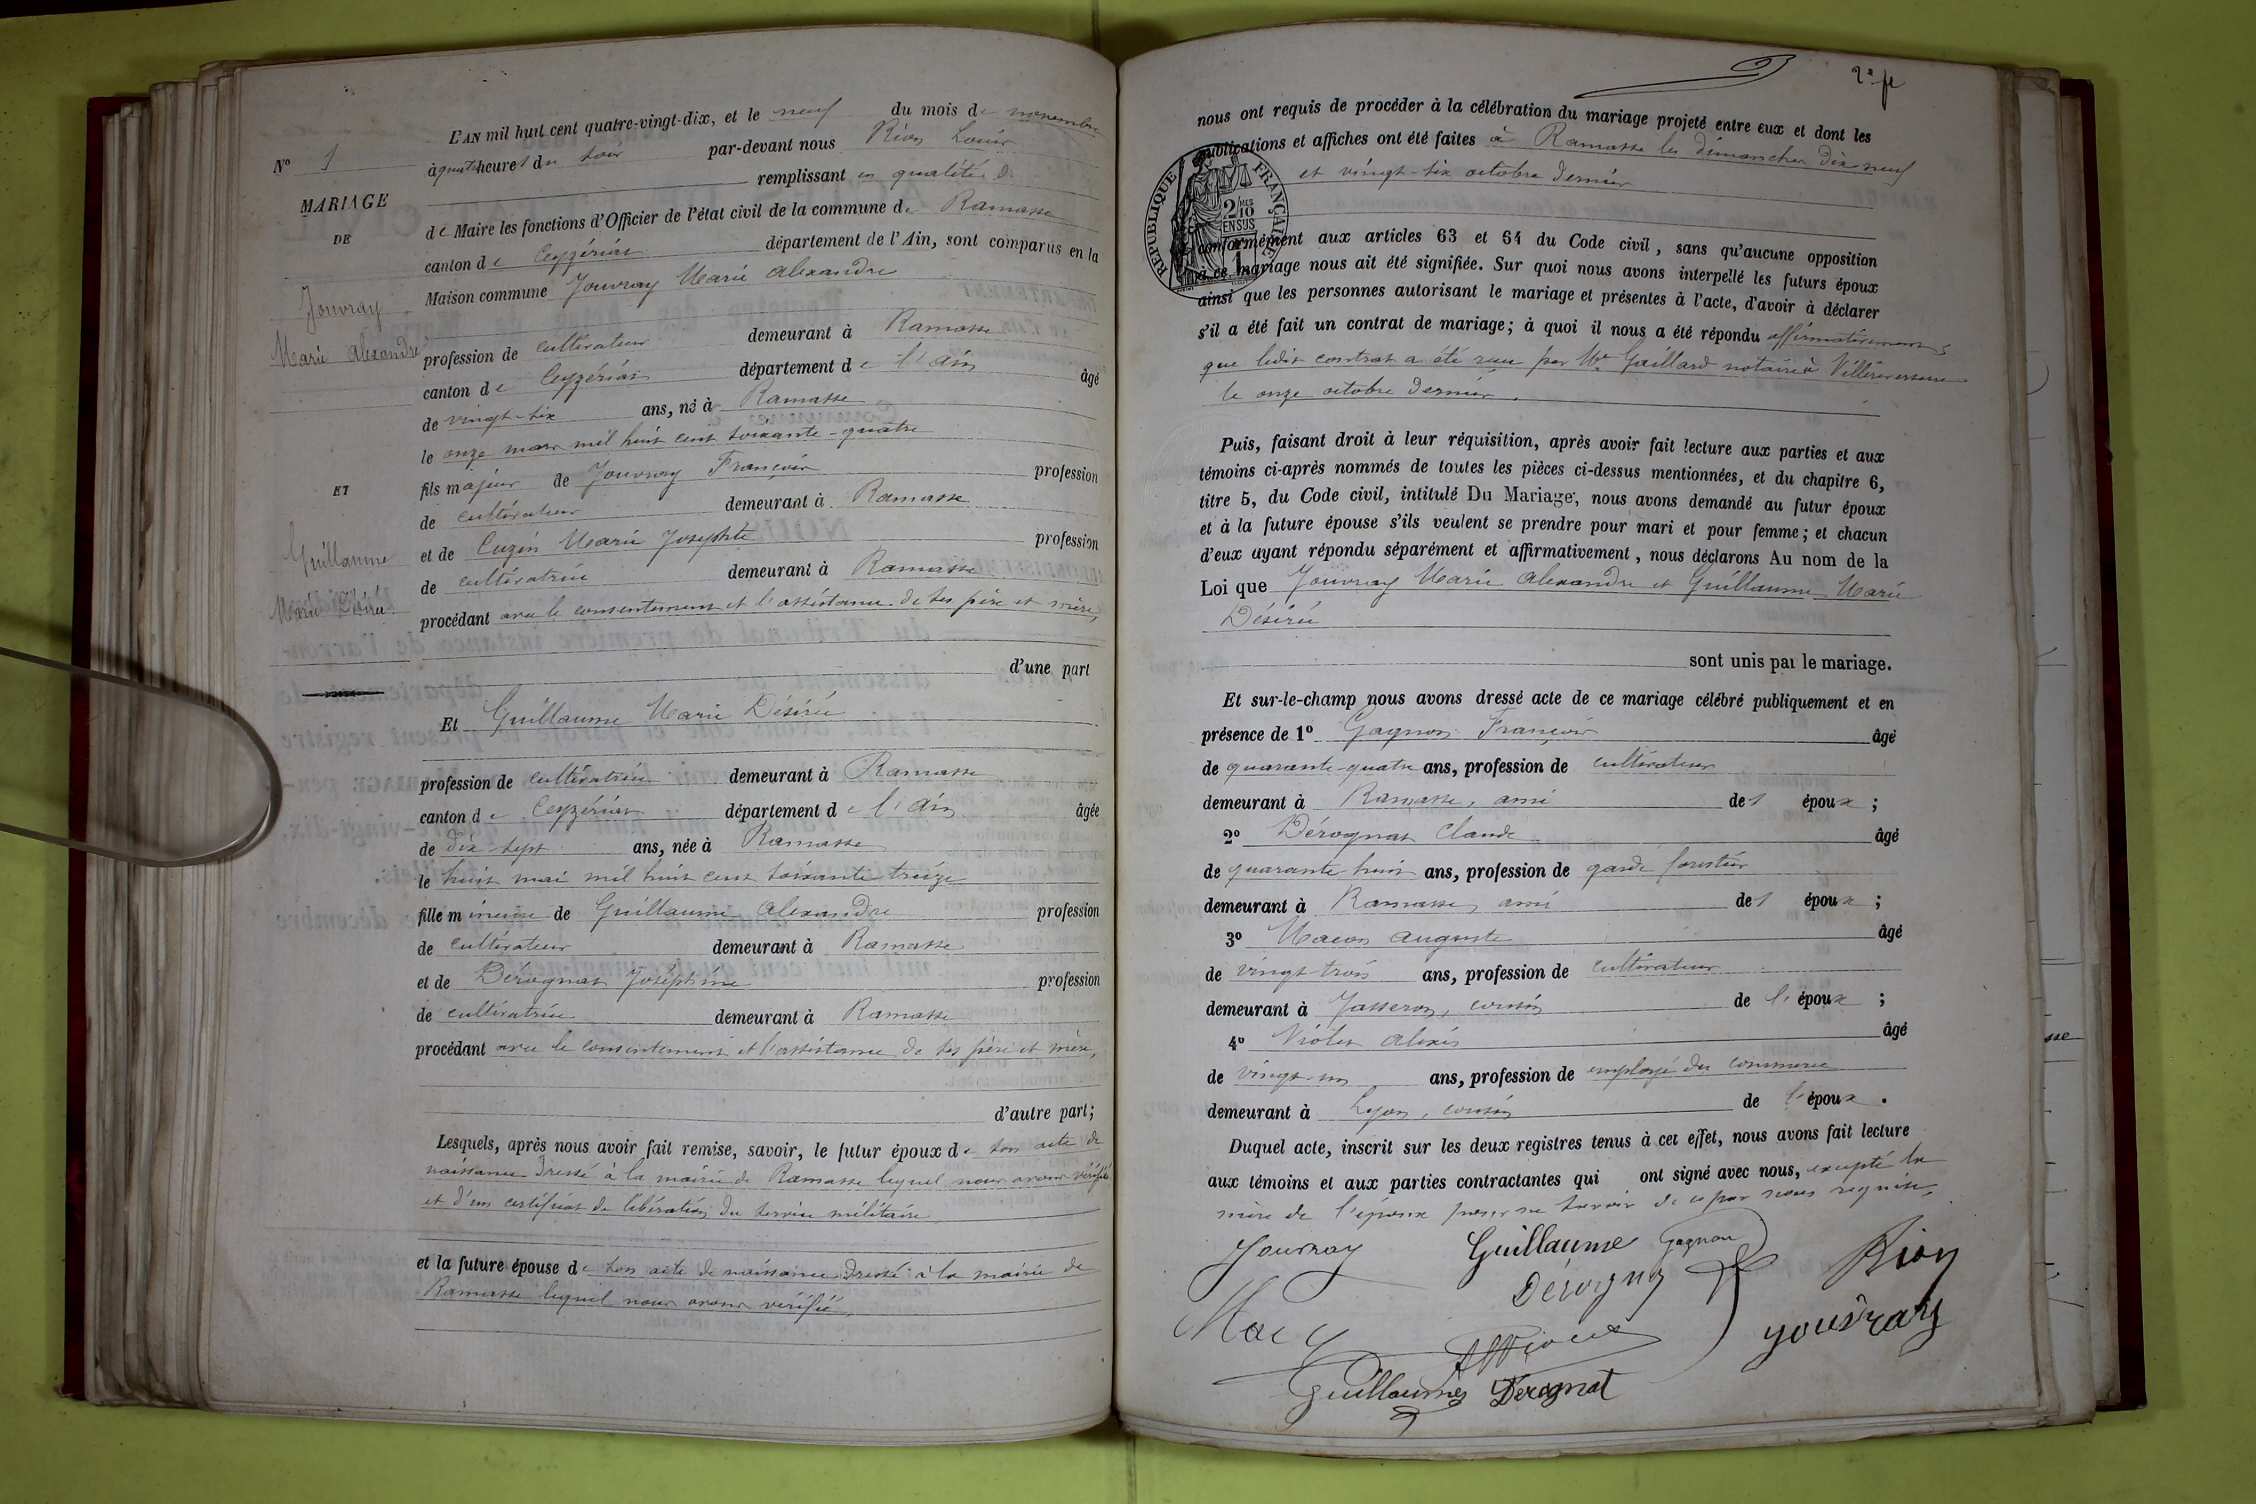 N° 1
MARIAGE
DE
Jouvray
Marie Alexandre
ET
Guillaume
Marie Désirée
L'AN mil huit cent quatre-vingt-dix, et le neuf du mois de novembre
à quatre heures du soir par-devant nous Rion Louis
remplissant en qualité de
de Maire les fonctions d'Officier de l'état civil de la commune de Ramasse
canton de Ceyzériat département de l'Ain, sont comparus en la
Maison commune Jouvray Marie Alexandre
profession de cultivateur demeurant à Ramasse
canton de Ceyzériat département de l'Ain âgé
de vingt-six ans, né à Ramasse
le onze mars mil huit cent soixante-quatre
fils majeur de Jouvray François profession
de cultivateur demeurant à Ramasse
et de Cuzin Marie Josephte profession
de cultivatrice demeurant à Ramasse
procédant avec le consentement et l'assistance de ses père et mère,
d'une part
Et Guillaume Marie Désirée
profession de cultivatrice demeurant à Ramasse
canton de Ceyzériat département de l'Ain âgée
de dix sept ans, née à Ramasse
le huit mai mil huit cent soixante treize
fille mineure de Guillaume Alexandre profession
de cultivateur demeurant à Ramasse
et de Dérognat Joséphine profession
de cultivatrice demeurant à Ramasse
procédant avec le consentement et l'assistance de ses père et mère,
d'autre part;
Lesquels, après nous avoir fait remise, savoir, le futur époux de son acte de
naissance dressé à la mairie de Ramasse lequel nous avons vérifié
et d'un certificat de libération du service militaire
et la future épouse de son acte de naissance dressé à la mairie de
Ramasse lequel nous avons vérifié,
2e
nous ont requis de procéder à la célébration du mariage projeté entre eux et dont les
publications et affiches ont été faites à Ramasse les dimanches dix neuf
et vingt-six octobre dernier
RÉPUBLIQUE FRANÇAISE
2/10 EN SUS
1
conformément aux articles 63 et 64 du Code civil, sans qu'aucune opposition
à ce mariage nous ait été signifiée. Sur quoi nous avons interpellé les futurs époux
ainsi que les personnes autorisant le mariage et présentes à l'acte, d'avoir à déclarer
s'il a été fait un contrat de mariage; à quoi il nous a été répondu affirmativement,
que ledit contrat a été reçu par Me Gaillard notaire à Villereversure
le onze octobre dernier.
Puis, faisant droit à leur réquisition, après avoir fait lecture aux parties et aux
témoins ci-après nommés de toutes les pièces ci-dessus mentionnées, et du chapitre 6,
titre 5, du Code civil, intitulé Du Mariage, nous avons demandé au futur époux
et à la future épouse s'ils veulent se prendre pour mari et pour femme; et chacun
d'eux ayant répondu séparément et affirmativement, nous déclarons Au nom de la
Loi que Jouvray Marie Alexandre et Guillaume Marie
Désirée
sont unis par le mariage.
Et sur-le-champ nous avons dressé acte de ce mariage célébré publiquement et en
présence de 1° Gagnon François âgé
de quarante-quatre ans, profession de cultivateur
demeurant à Ramasse, ami des époux;
2° Dérognat Claude âgé
de quarante huit ans, profession de garde forestier
demeurant à Ramasse, ami des époux;
3° Macon Auguste âgé
de vingt-trois ans, profession de cultivateur
demeurant à Jasseron, cousin de l'époux;
4° Violet Alexis âgé
de vingt-un ans, profession de employé du commerce
demeurant à Lyon, cousin de l'époux.
Duquel acte, inscrit sur les deux registres tenus à cet effet, nous avons fait lecture
aux témoins et aux parties contractantes qui ont signé avec nous, excepté la
mère de l'époux pour ne savoir de ce par nous requise,
Jouvray Guillaume Gagnon Rion
Dérognat
Jouvray
Guillaume Derognat